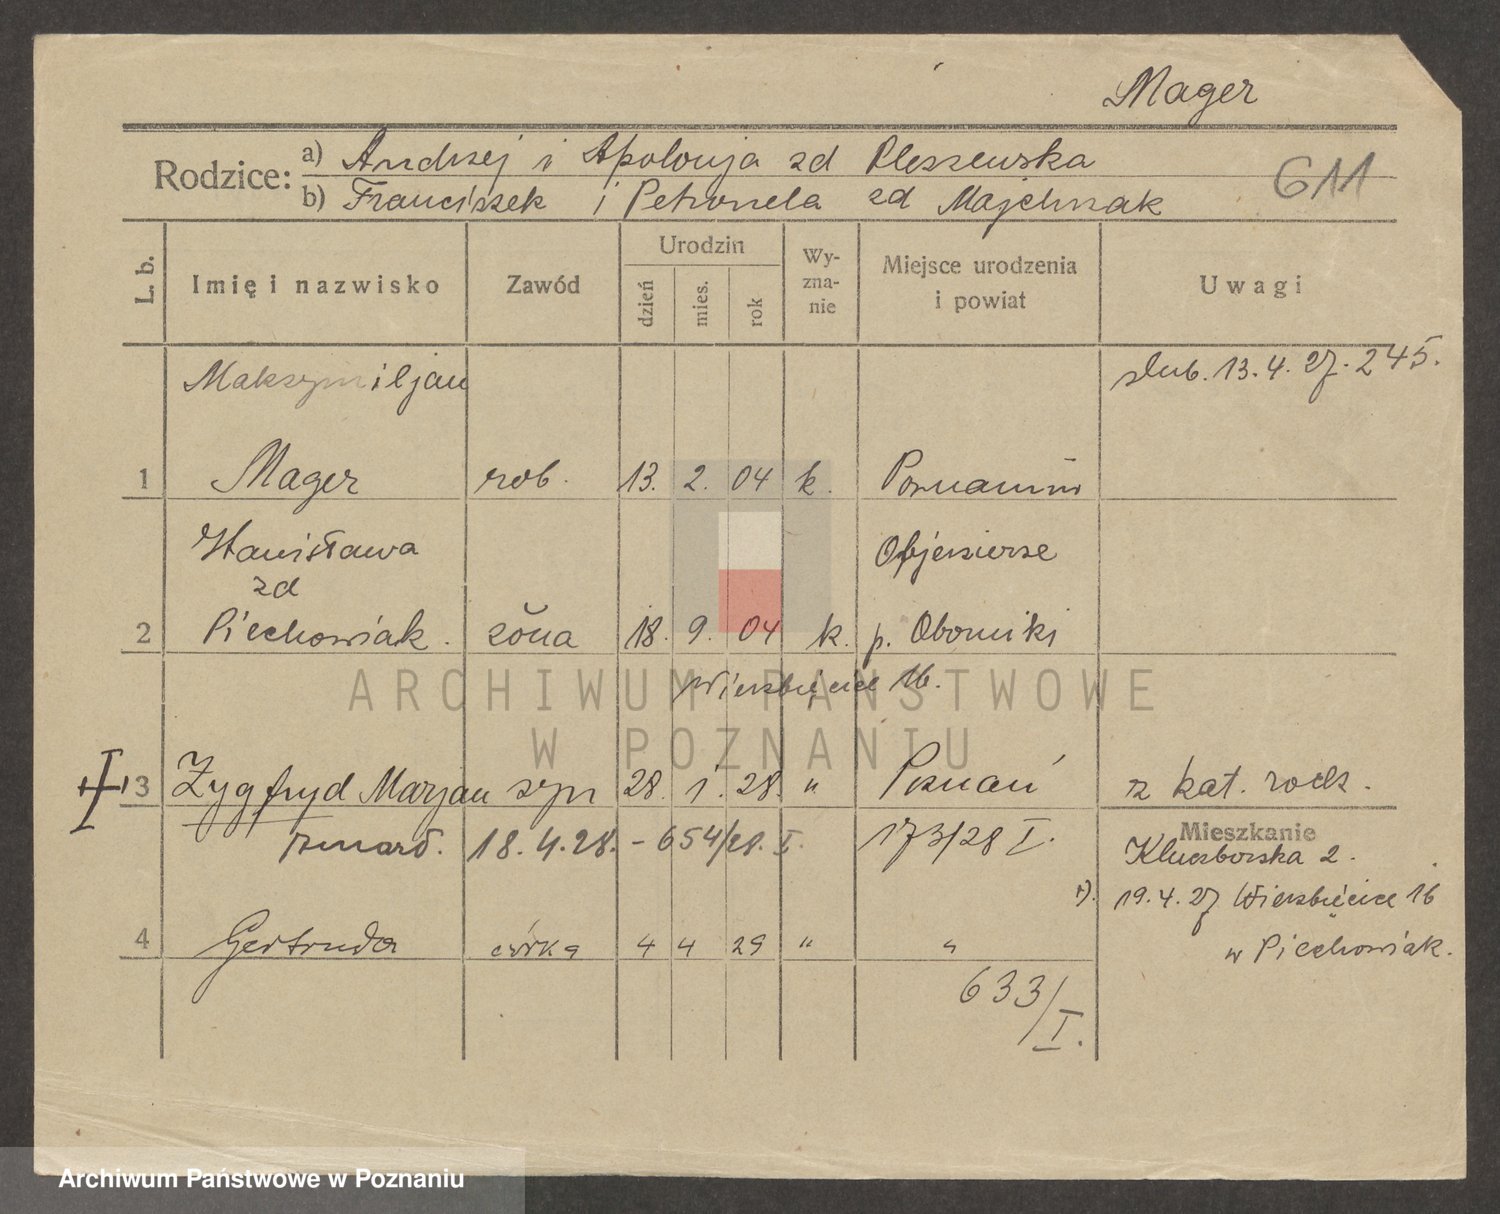 Mager
Rodzice: a) Andrzej i Apolonja zd Pleszewska
b) Franciszek i Petronela zd Majchrzak
611
L. b. Imię i nazwisko Zawód Urodzin Wy-zna-nie Miejsce urodzenia i powiat Uwagi
dzień mies. rok
Maksymiljan ślub. 13.4.27. 245.
1 Mager rob. 13. 2. 04 k. Poznań
Stanisława Objezierze
zd
2 Piechowiak. żona 18. 9. 04 k. p. Oborniki
Wierzbięcice 16.
3 Zygfryd Marjan syn 28. 1. 28. " Poznań z kat. rodz.
zmarł. 18.4.28. - 654/28. I. 173/28 I.
Mieszkanie
Kluczborska 2.
+). 19.4.27 Wierzbięcice 16
4 Gertruda córka 4 4 29 " " w Piechowiak.
633/I.
ARCHIWUM PAŃSTWOWE
W POZNANIU
Archiwum Państwowe w Poznaniu